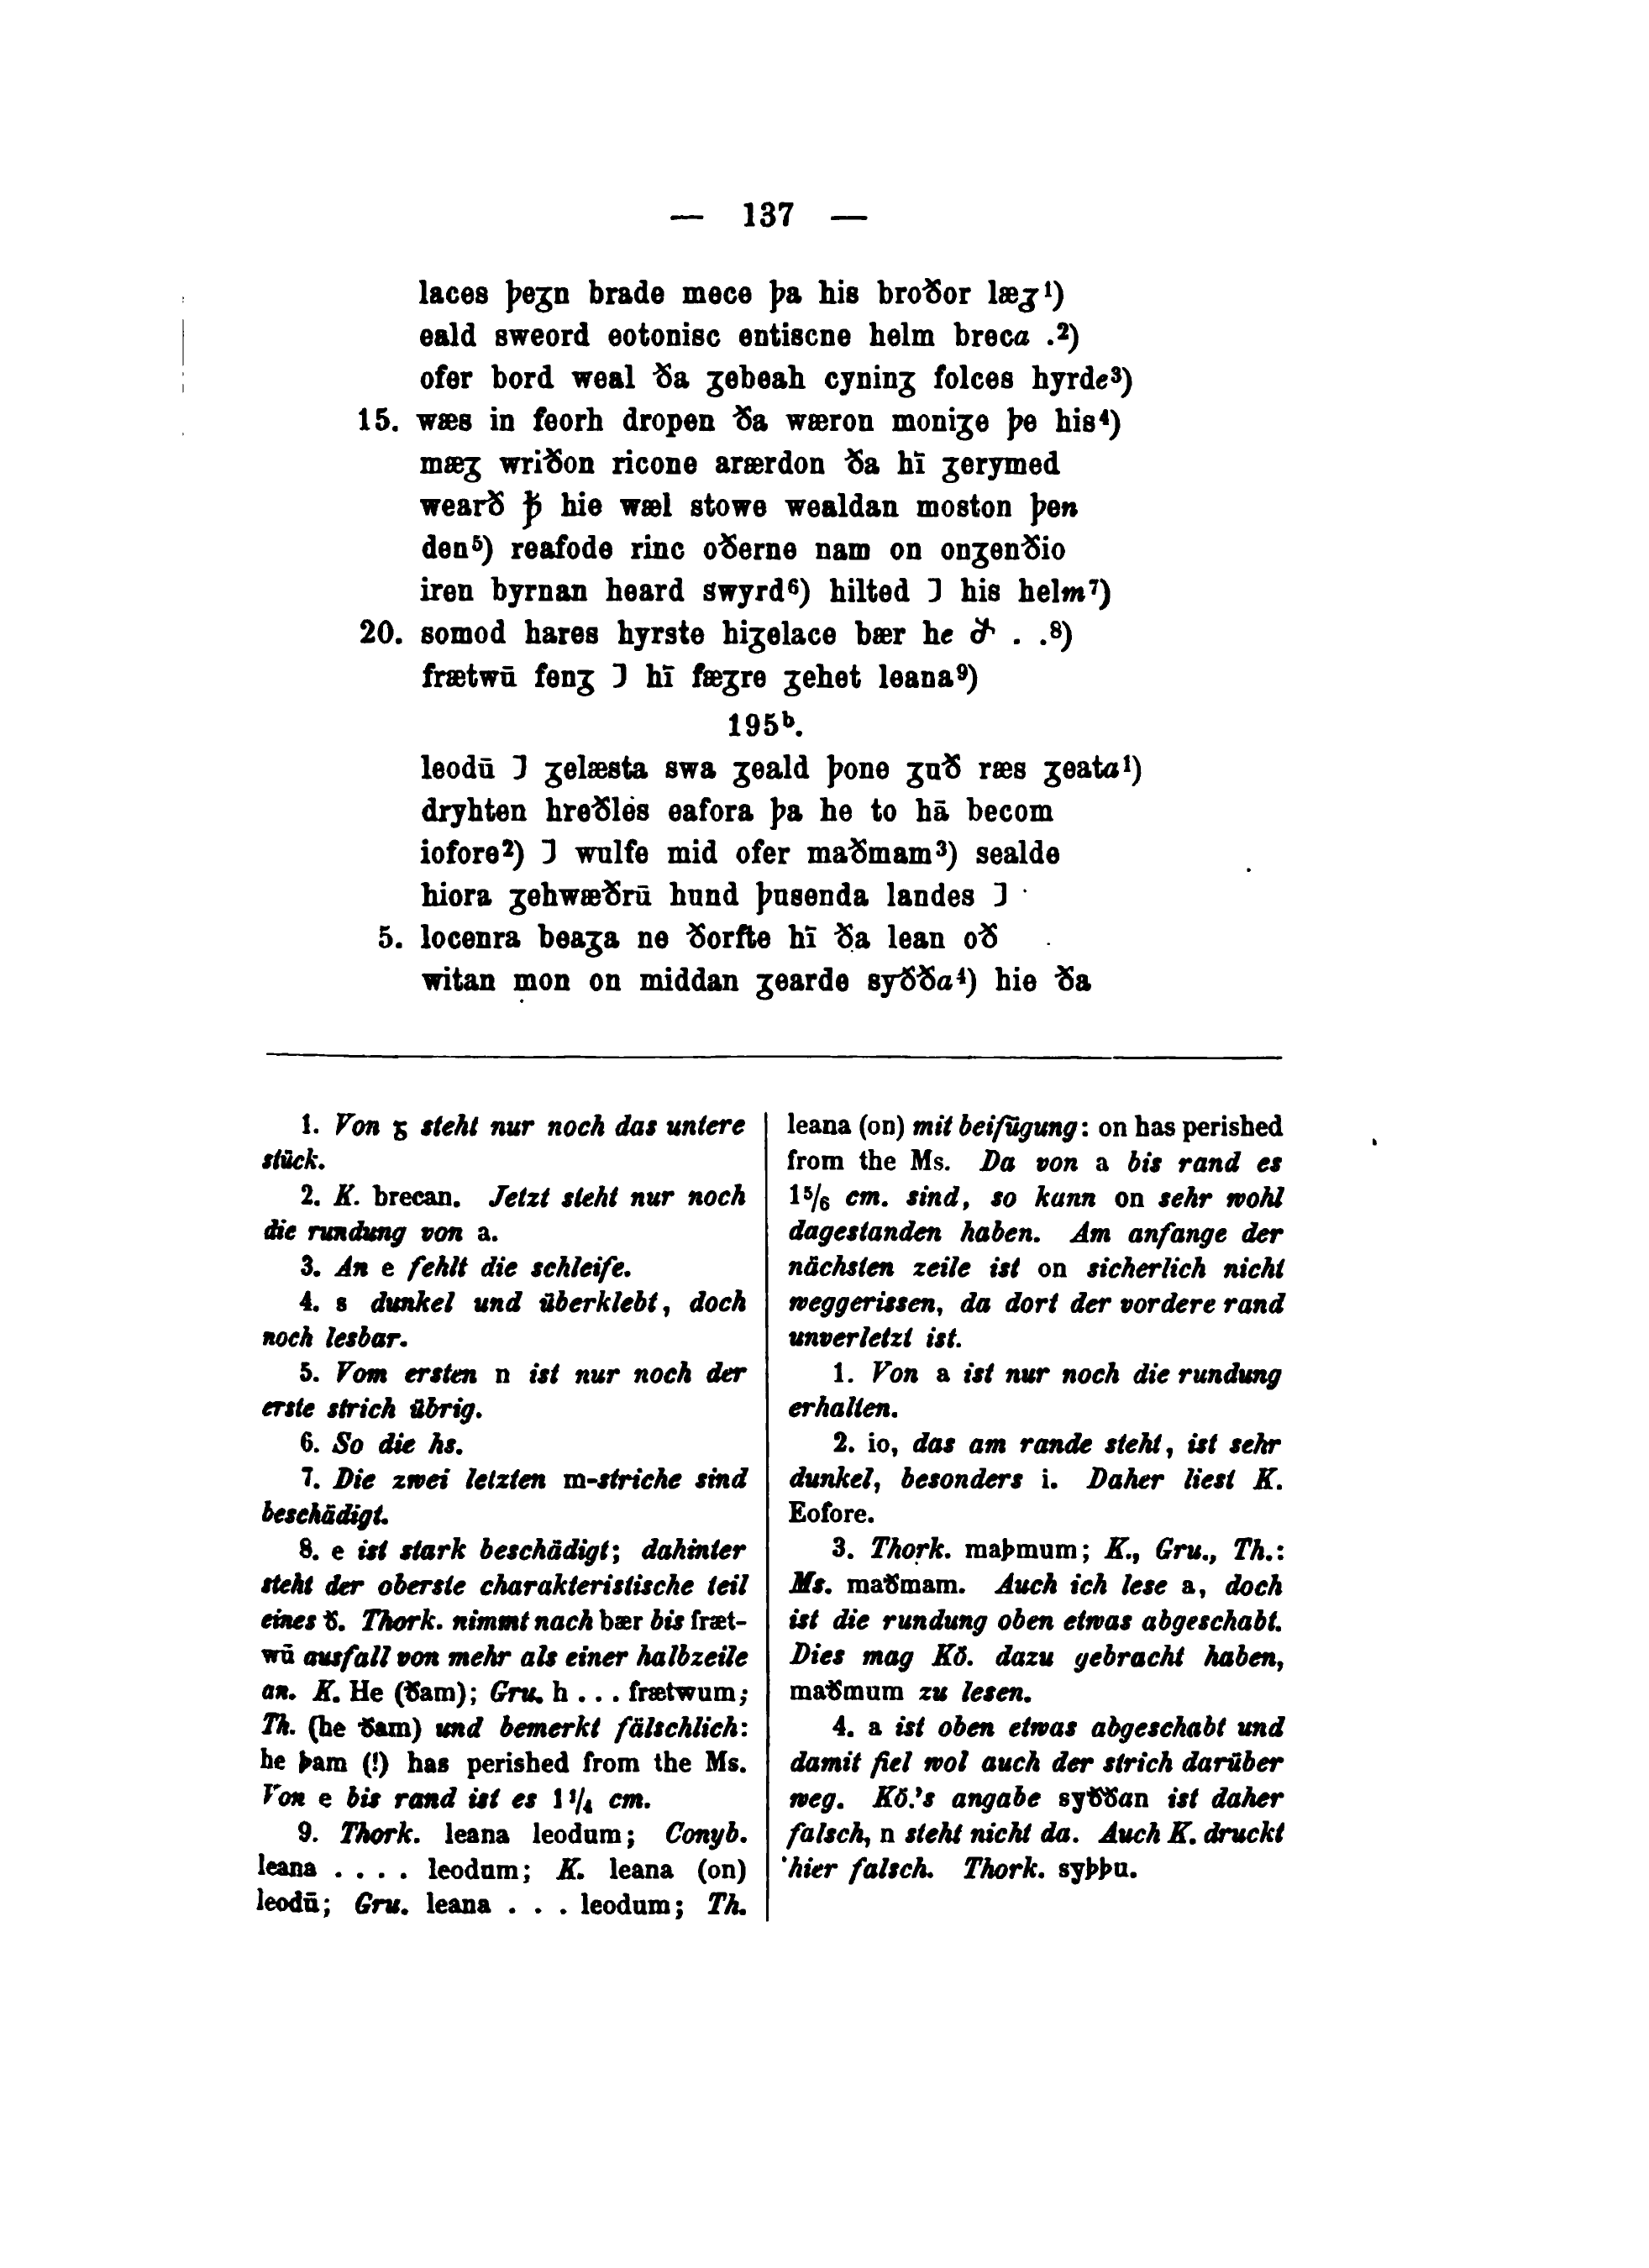 — 137 —
laces þeʒn brade mece þa his broðor læʒ¹)
eald sweord eotonisc entiscne helm breca .²)
ofer bord weal ða ʒebeah cyninʒ folces hyrde³)
15. wæs in feorh dropen ða wæron moniʒe þe his⁴)
mæʒ wriðon ricone arærdon ða hī ʒerymed
wearð ꝥ hie wæl stowe wealdan moston þen
den⁵) reafode rinc oðerne nam on onʒenðio
iren byrnan heard swyrd⁶) hilted ⁊ his helm⁷)
20. somod hares hyrste hiʒelace bær he ð . .⁸)
frætwū fenʒ ⁊ hī fæʒre ʒehet leana⁹)
195ᵇ.
leodū ⁊ ʒelæsta swa ʒeald þone ʒuð ræs ʒeata¹)
dryhten hreðles eafora þa he to hā becom
iofore²) ⁊ wulfe mid ofer maðmam³) sealde
hiora ʒehwæðrū hund þusenda landes ⁊
5. locenra beaʒa ne ðorfte hī ða lean oð
witan mon on middan ʒearde syðða⁴) hie ða
1. Von ʒ steht nur noch das untere
stück.
2. K. brecan. Jetzt steht nur noch
die rundung von a.
3. An e fehlt die schleife.
4. s dunkel und überklebt, doch
noch lesbar.
5. Vom ersten n ist nur noch der
erste strich übrig.
6. So die hs.
7. Die zwei letzten m-striche sind
beschädigt.
8. e ist stark beschädigt; dahinter
steht der oberste charakteristische teil
eines ð. Thork. nimmt nach bær bis fræt-
wū ausfall von mehr als einer halbzeile
an. K. He (ðam); Gru. h . . . frætwum;
Th. (he ðam) und bemerkt fälschlich:
he þam (!) has perished from the Ms.
Von e bis rand ist es 1¹/₄ cm.
9. Thork. leana leodum; Conyb.
leana . . . . leodum; K. leana (on)
leodū; Gru. leana . . . leodum; Th.
leana (on) mit beifügung: on has perished
from the Ms. Da von a bis rand es
1⁵/₆ cm. sind, so kann on sehr wohl
dagestanden haben. Am anfange der
nächsten zeile ist on sicherlich nicht
weggerissen, da dort der vordere rand
unverletzt ist.
1. Von a ist nur noch die rundung
erhalten.
2. io, das am rande steht, ist sehr
dunkel, besonders i. Daher liest K.
Eofore.
3. Thork. maþmum; K., Gru., Th.:
Ms. maðmam. Auch ich lese a, doch
ist die rundung oben etwas abgeschabt.
Dies mag Kö. dazu gebracht haben,
maðmum zu lesen.
4. a ist oben etwas abgeschabt und
damit fiel wol auch der strich darüber
weg. Kö.'s angabe syððan ist daher
falsch, n steht nicht da. Auch K. druckt
hier falsch. Thork. syþþu.